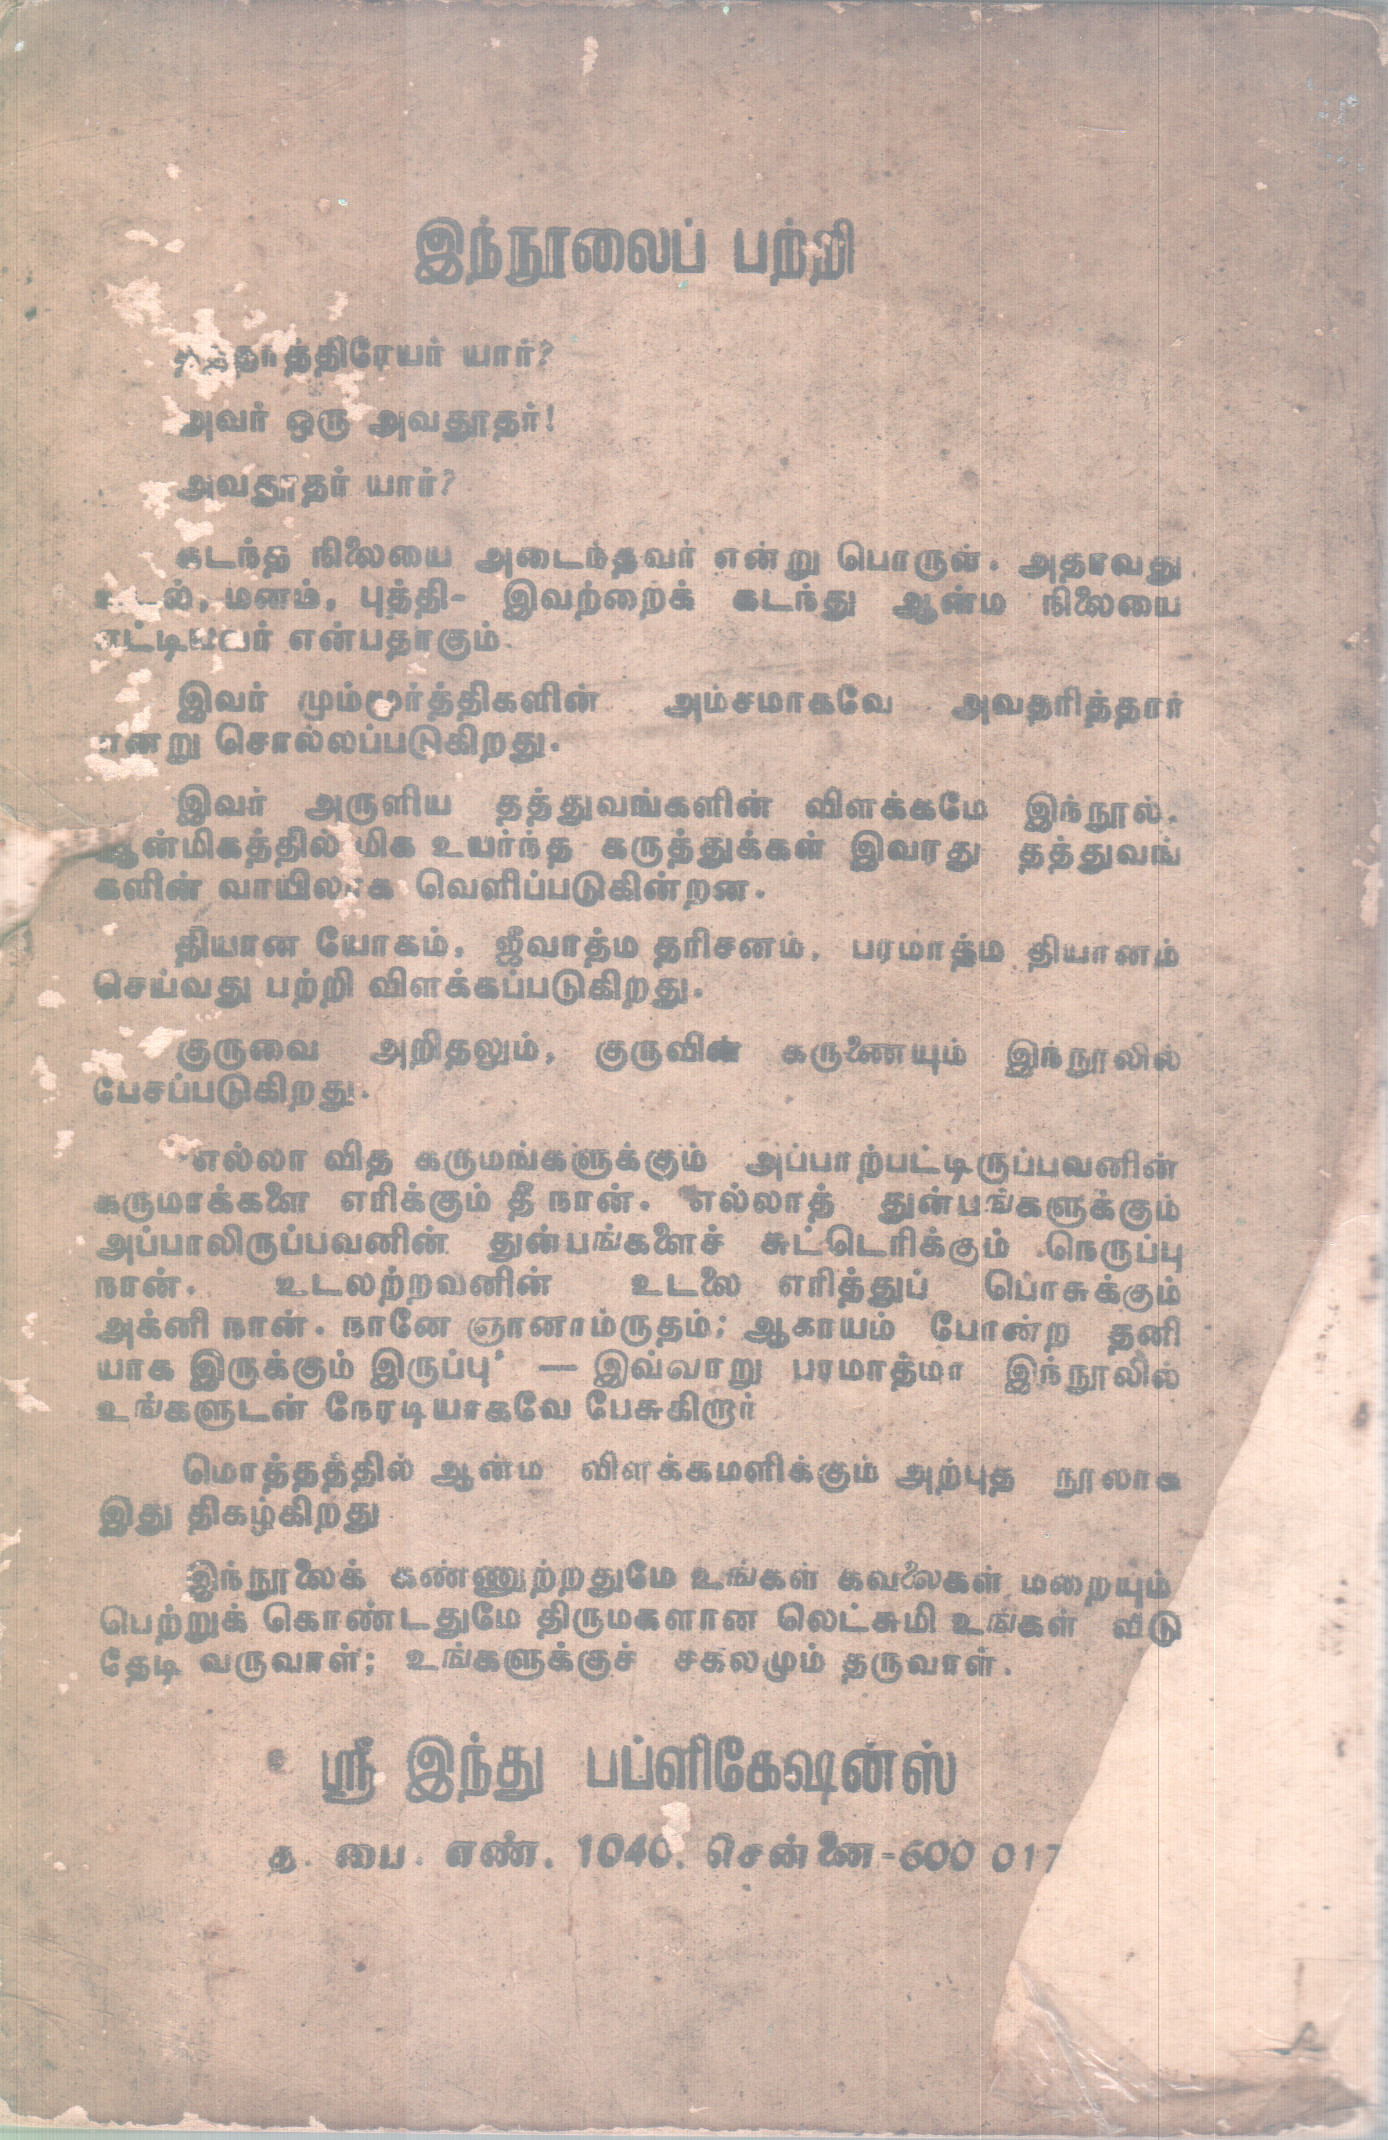 இந்நூலைப் பற்றி
தத்தாத்திரேயர் யார்?
அவர் ஒரு அவதூதர்!
அவதூதர் யார்?
கடந்த நிலையை அடைந்தவர் என்று பொருள். அதாவது
உடல், மனம், புத்தி- இவற்றைக் கடந்து ஆன்ம நிலையை
எட்டியவர் என்பதாகும்.
இவர் மும்மூர்த்திகளின் அம்சமாகவே அவதரித்தார்
என்று சொல்லப்படுகிறது.
இவர் அருளிய தத்துவங்களின் விளக்கமே இந்நூல்.
ஆன்மிகத்தில் மிக உயர்ந்த கருத்துக்கள் இவரது தத்துவங்
களின் வாயிலாக வெளிப்படுகின்றன.
தியான யோகம், ஜீவாத்ம தரிசனம், பரமாத்ம தியானம்
செய்வது பற்றி விளக்கப்படுகிறது.
குருவை அறிதலும், குருவின் கருணையும் இந்நூலில்
பேசப்படுகிறது.
'எல்லா வித கருமங்களுக்கும் அப்பாற்பட்டிருப்பவனின்
கருமாக்களை எரிக்கும் தீ நான். எல்லாத் துன்பங்களுக்கும்
அப்பாலிருப்பவனின் துன்பங்களைச் சுட்டெரிக்கும் நெருப்பு
நான். உடலற்றவனின் உடலை எரித்துப் பொசுக்கும்
அக்னி நான். நானே ஞானாம்ருதம்; ஆகாயம் போன்ற தனி
யாக இருக்கும் இருப்பு' — இவ்வாறு பரமாத்மா இந்நூலில்
உங்களுடன் நேரடியாகவே பேசுகிறார்
மொத்தத்தில் ஆன்ம விளக்கமளிக்கும் அற்புத நூலாக
இது திகழ்கிறது
இந்நூலைக் கண்ணுற்றதுமே உங்கள் கவலைகள் மறையும்
பெற்றுக் கொண்டதுமே திருமகளான லெட்சுமி உங்கள் வீடு
தேடி வருவாள்; உங்களுக்குச் சகலமும் தருவாள்.
ஸ்ரீ இந்து பப்ளிகேஷன்ஸ்
த. பை. எண். 1040, சென்னை-600 017